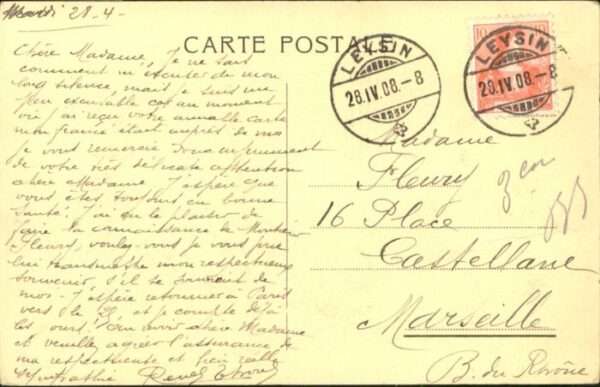 Mardi 28-4-
CARTE POSTALE
Chère Madame, Je ne sais
comment m'excuser de mon
long silence, mais je suis un
peu excusable car au moment
où j'ai reçu votre aimable carte
mon fiancé était auprès de moi
Je vous remercie donc
de votre très délicate attention
chère Madame. J'espère que
vous êtes toujours en bonne
santé. J'ai eu le plaisir de
faire la connaissance de Monsieur
Fleury, voulez-vous je vous prie
lui transmettre mon respectueux
souvenir, s'il se souvient de
moi - J'espère retourner à Paris
vers le et je compte déjà
les jours! Au revoir chère Madame
et veuillez agréer l'assurance de
ma respectueuse et bien réelle
sympathie
LEYSIN
28.IV.08.-8
LEYSIN
28.IV.08.-8
10
Madame
Fleury
16 Place
Castellane
Marseille
B. du Rhône